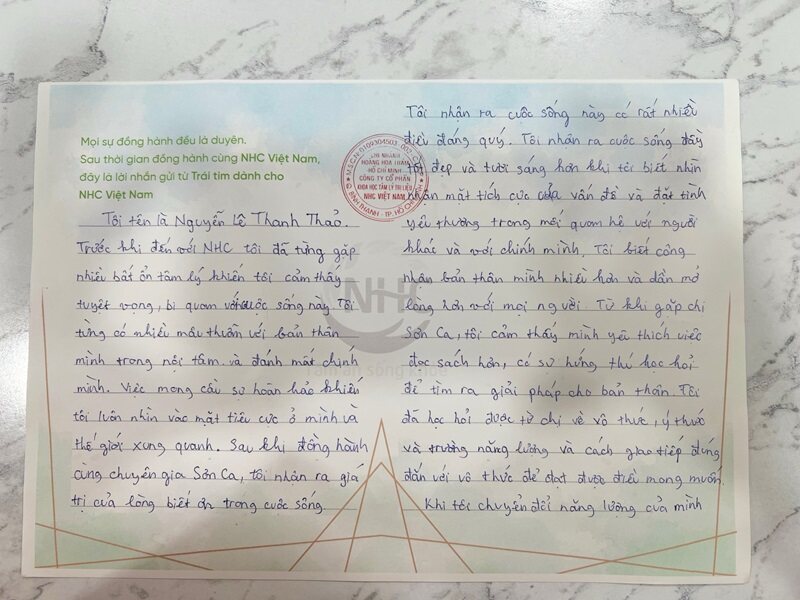 Mọi sự đồng hành đều là duyên.
Sau thời gian đồng hành cùng NHC Việt Nam,
đây là lời nhắn gửi từ Trái tim dành cho
NHC Việt Nam
Tôi tên là Nguyễn Lê Thanh Thảo.
Trước khi đến với NHC tôi đã từng gặp
nhiều bất ổn tâm lý khiến tôi cảm thấy
tuyệt vọng, bi quan với cuộc sống này. Tôi
từng có nhiều mâu thuẫn với bản thân
mình trong nội tâm và đánh mất chính
mình. Việc mong cầu sự hoàn hảo khiến
tôi luôn nhìn vào mặt tiêu cực ở mình và
thế giới xung quanh. Sau khi đồng hành
cùng chuyên gia Sơn Ca, tôi nhận ra giá
trị của lòng biết ơn trong cuộc sống.
CHI NHÁNH
HOÀNG HOA THÁM
HỒ CHÍ MINH
CÔNG TY CỔ PHẦN
KHOA HỌC TÂM LÝ TRỊ LIỆU
NHC VIỆT NAM
Q. BÌNH THẠNH - TP. HỒ CHÍ MINH
NHC
Tâm an sống khỏe
Tôi nhận ra cuộc sống này có rất nhiều
điều đáng quý. Tôi nhận ra cuộc sống đầy
tốt đẹp và tươi sáng hơn khi tôi biết nhìn
nhận mặt tích cực của vấn đề và đặt tình
yêu thương trong mối quan hệ với người
khác và với chính mình. Tôi biết công
nhận bản thân mình nhiều hơn và dần mở
lòng hơn với mọi người. Từ khi gặp chị
Sơn Ca, tôi cảm thấy mình yêu thích việc
đọc sách hơn, có sự hứng thú học hỏi
để tìm ra giải pháp cho bản thân. Tôi
đã học hỏi được từ chị về vô thức, ý thức
và trường năng lượng và cách giao tiếp đúng
đắn với vô thức để đạt được điều mong muốn.
Khi tôi chuyển đổi năng lượng của mình